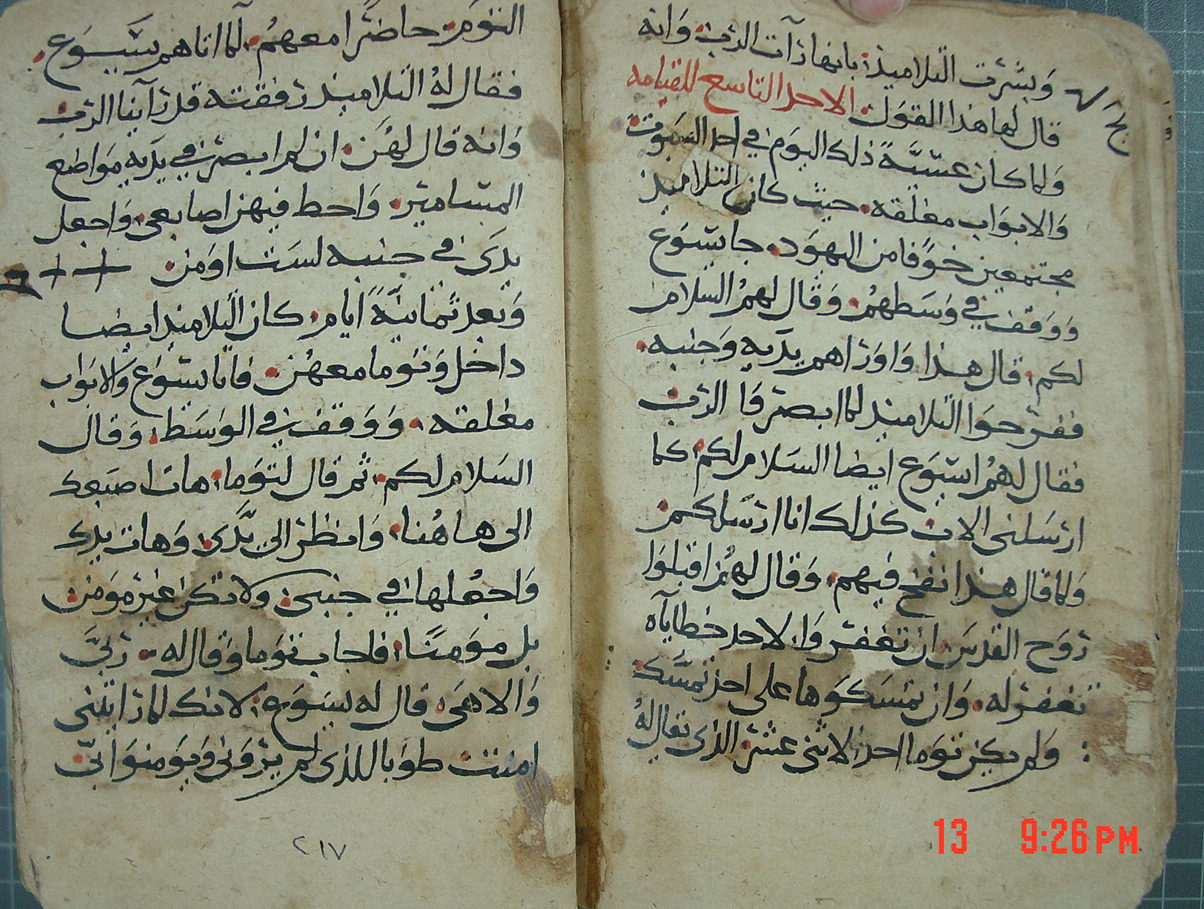 وبشرت التلاميذ بانها رات الرب وانه
قال لها هذا القول الاحد التاسع للقيامه
ولما كان عشية ذلك اليوم في احد السبوت
والابواب مغلقه حيث كان التلاميذ
مجتمعين خوفا من اليهود جا يسوع
ووقف في وسطهم وقال لهم السلام
لكم قال هذا واوراهم يديه وجنبه
ففرحوا التلاميذ لما ابصروا الرب
فقال لهم اسيوع ايضا السلام لكم كما
ارسلني الاب كذلك انا ارسلكم
ولما قال هذا نفخ فيهم وقال لهم اقبلوا
روح القدس ان تغفروا لاحد خطاياه
تغفر له وان تمسكوها على احد تمسك
ولم يكن توما احد الاثني عشر الذي يقال له
التوم حاضرا معهم لما اتاهم يسوع
فقال له التلاميذ رفقته قد راينا الرب
وانه قال لهن ان لم ابصر في يديه مواضع
المسامير واحط فيهن اصابعي واجعل
يدي في جنبه لست اومن
وبعد ثمانية ايام كان التلاميذ ايضا
داخل وتوما معهن فاتا يسوع والابواب
مغلقه ووقف في الوسط وقال
السلام لكم ثم قال لتوما هات اصبعك
الى هاهنا وانظر الى يدي وهات يدك
واجعلها في جنبي ولا تكن غير مومن
بل مومنا فاجاب توما وقال له ربي
والاهي قال له يسوع لانك لما رايتني
امنت طوبا للذي لم يروني ويومنوا بي
٢١٧
13 9:26 PM